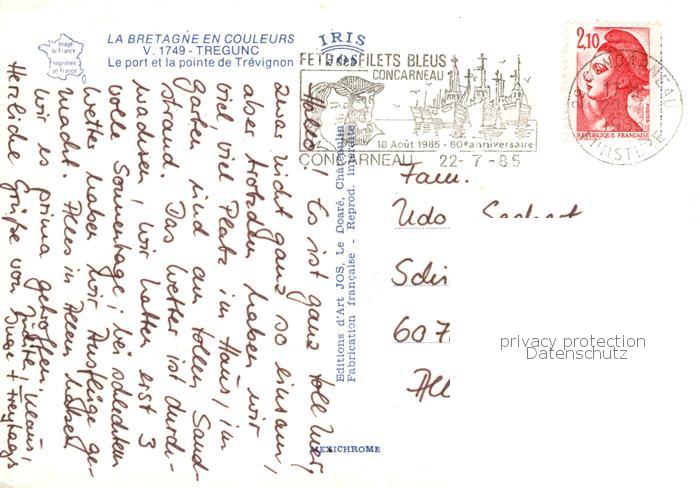 Image
de France
Imprimée
en France
LA BRETAGNE EN COULEURS
V. 1749 - TREGUNC
Le port et la pointe de Trévignon
IRIS
JOS
FETE DES FILETS BLEUS
CONCARNEAU
18 Août 1985 - 80e anniversaire
CONCARNEAU 22-7-85
2,10
REPUBLIQUE FRANÇAISE
POSTES
29 CONCARNEAU
FINISTERE
Hallo! Es ist ganz toll hier,
zwar nicht ganz so einsam,
aber trotzdem haben wir
viel viel Platz im Haus, im
Garten und am tollen Sand-
strand. Das Wetter ist durch-
wachsen, wir hatten erst 3
volle Sonnentage; bei schlechtem
Wetter haben wir Ausflüge ge-
macht. Alles in Allem haben
wir es prima getroffen.
Herzliche Grüße von
Klaus,
Inge + Freytags
Editions d'Art JOS, Le Doaré, Châteaulin
Fabrication française - Reprod. interdite
MEXICHROME
Fam.
Udo
607
privacy protection
Datenschutz